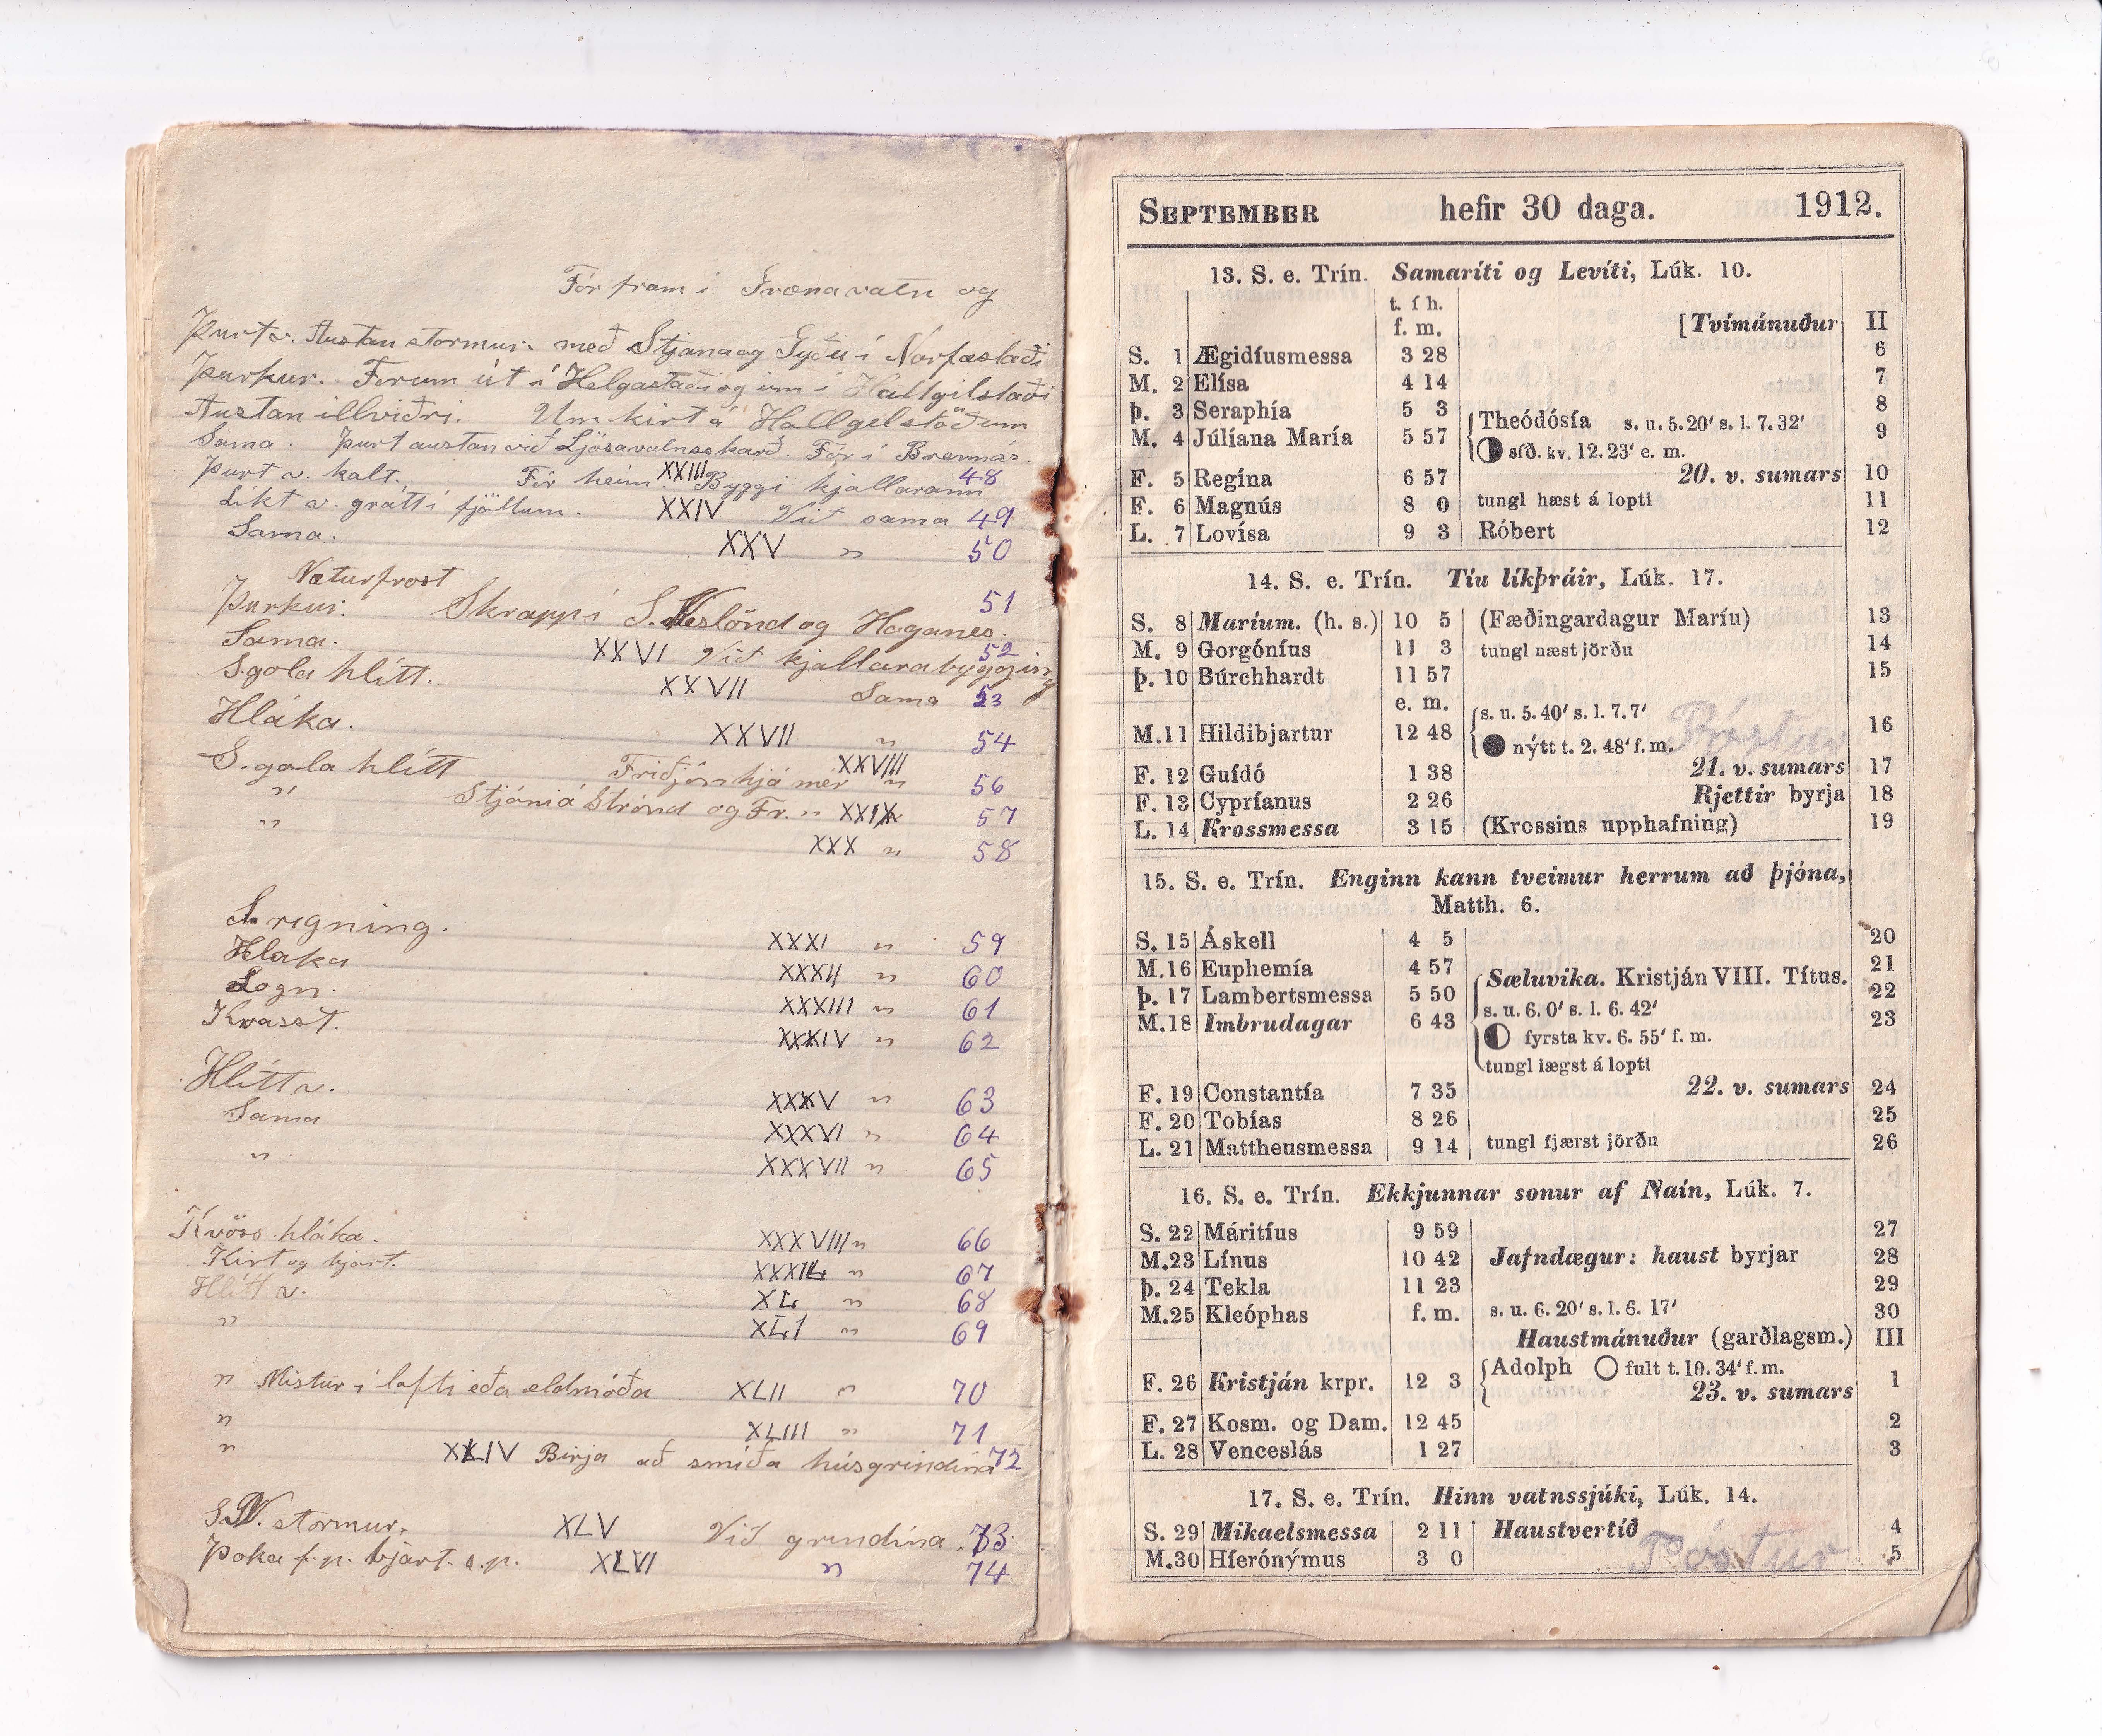 Fór fram í Grænavatn og
Þurt v. Austan stormur. með Stjana og Gyðu í Narfastaði
Þurkur. Forum út í Helgastaði og um í Hallgilstaði
Austan illviðri. Um kirt á Hallgelstöðum
Sama. Þurt austan við Ljósavatnsskarð. Fór í Brennás.
Þurt v. kalt. Fór heim. XXIII Byggi kjallarann 48
Líkt v. grátt í fjöllum. XXIV Við sama 49
Sama. XXV " 50
Næturfrost
Þurkur. Skrapp í S. Neslönd og Haganes. 51
Sama. XXVI Við kjallarabygging 52
S.gola hlítt. XXVII Sama 53
Hláka. XXVII " 54
S. gola hlítt Friðjón hjá mér XXVIII " 56
" Stjáni á Strönd og Fr. " XXIX 57
" XXX " 58
S. rigning. XXXI " 59
Hlaka XXXII " 60
Logn. XXXIII " 61
Kvasst. XXXIV " 62
Hlítt v. XXXV " 63
Sama XXXVI " 64
" XXXVII " 65
Kvöss hláka. XXXVIII " 66
Kirt og bjart. " 67
Hlítt v. XL " 68
" XLI " 69
" Mistur í lofti eða eldmóða XLII " 70
" XLIII " 71
" XLIV Birja að smíða húsgrindina 72
stormur. XLV Við grindina. 73.
Þoka f.p. bjart. s.p. XLVI " 74
SEPTEMBER hefir 30 daga. 1912.
13. S. e. Trín. Samaríti og Levíti, Lúk. 10.
t. í h.
f. m. [Tvímánuður II
S. 1 Ægidíusmessa 3 28 6
M. 2 Elísa 4 14 7
Þ. 3 Seraphía 5 3 8
Theódósía s. u. 5.20′ s. l. 7.32′
M. 4 Júlíana María 5 57 9
síð. kv. 12. 23′ e. m.
F. 5 Regína 6 57 20. v. sumars 10
F. 6 Magnús 8 0 tungl hæst á lopti 11
L. 7 Lovísa 9 3 Róbert 12
14. S. e. Trín. Tíu líkþráir, Lúk. 17.
S. 8 Maríum. (h. s.) 10 5 (Fæðingardagur Maríu) 13
M. 9 Gorgóníus 11 3 tungl næst jörðu 14
Þ. 10 Búrchhardt 11 57 15
e. m. s. u. 5. 40′ s. l. 7. 7′
Póstur
M. 11 Hildibjartur 12 48 nýtt t. 2. 48′ f. m. 16
F. 12 Guídó 1 38 21. v. sumars 17
F. 13 Cypríanus 2 26 Rjettir byrja 18
L. 14 Krossmessa 3 15 (Krossins upphafning) 19
15. S. e. Trín. Enginn kann tveimur herrum að þjóna,
Matth. 6.
S. 15 Áskell 4 5 20
M. 16 Euphemía 4 57 21
Sæluvika. Kristján VIII. Títus.
Þ. 17 Lambertsmessa 5 50 22
s. u. 6. 0′ s. l. 6. 42′
M. 18 Imbrudagar 6 43 23
fyrsta kv. 6. 55′ f. m.
tungl lægst á lopti
F. 19 Constantía 7 35 22. v. sumars 24
F. 20 Tobías 8 26 25
L. 21 Mattheusmessa 9 14 tungl fjærst jörðu 26
16. S. e. Trín. Ekkjunnar sonur af Naín, Lúk. 7.
S. 22 Máritíus 9 59 27
M. 23 Línus 10 42 Jafndægur: haust byrjar 28
Þ. 24 Tekla 11 23 29
M. 25 Kleóphas f. m. s. u. 6. 20′ s. l. 6. 17′ 30
Haustmánuður (garðlagsm.) III
Adolph fult t. 10. 34′ f. m.
F. 26 Kristján krpr. 12 3 23. v. sumars 1
F. 27 Kosm. og Dam. 12 45 2
L. 28 Venceslás 1 27 3
17. S. e. Trín. Hinn vatnssjúki, Lúk. 14.
S. 29 Mikaelsmessa 2 11 Haustvertíð 4
M. 30 Híerónýmus 3 0 Póstur 5